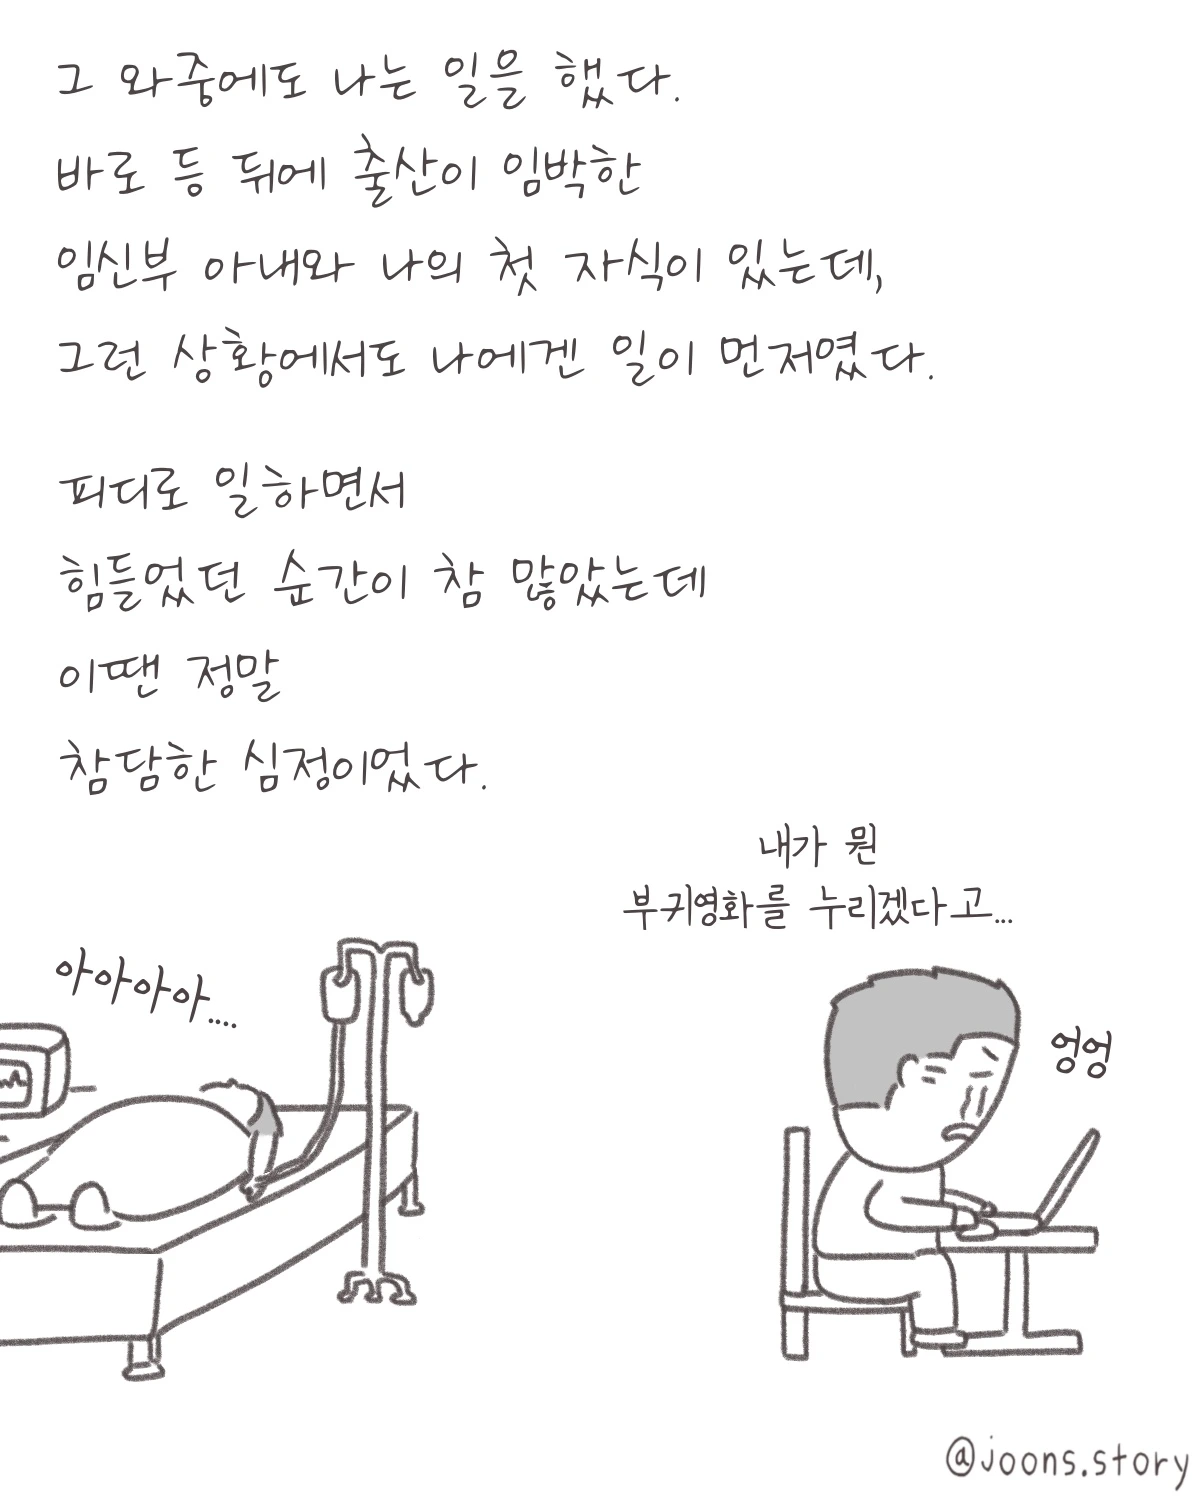 그 와중에도 나는 일을 했다.
바로 등 뒤에 출산이 임박한
임신부 아내와 나의 첫 자식이 있는데,
그런 상황에서도 나에겐 일이 먼저였다.
피디로 일하면서
힘들었던 순간이 참 많았는데
이땐 정말
참담한 심정이었다.
내가 뭔
부귀영화를 누리겠다고...
아아아아....
엉엉
@joons.story